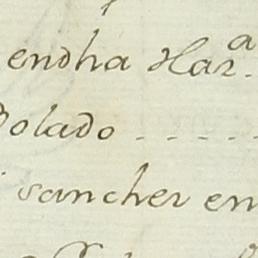 endha Haz.ª
Bolado - - - -
sanchez en